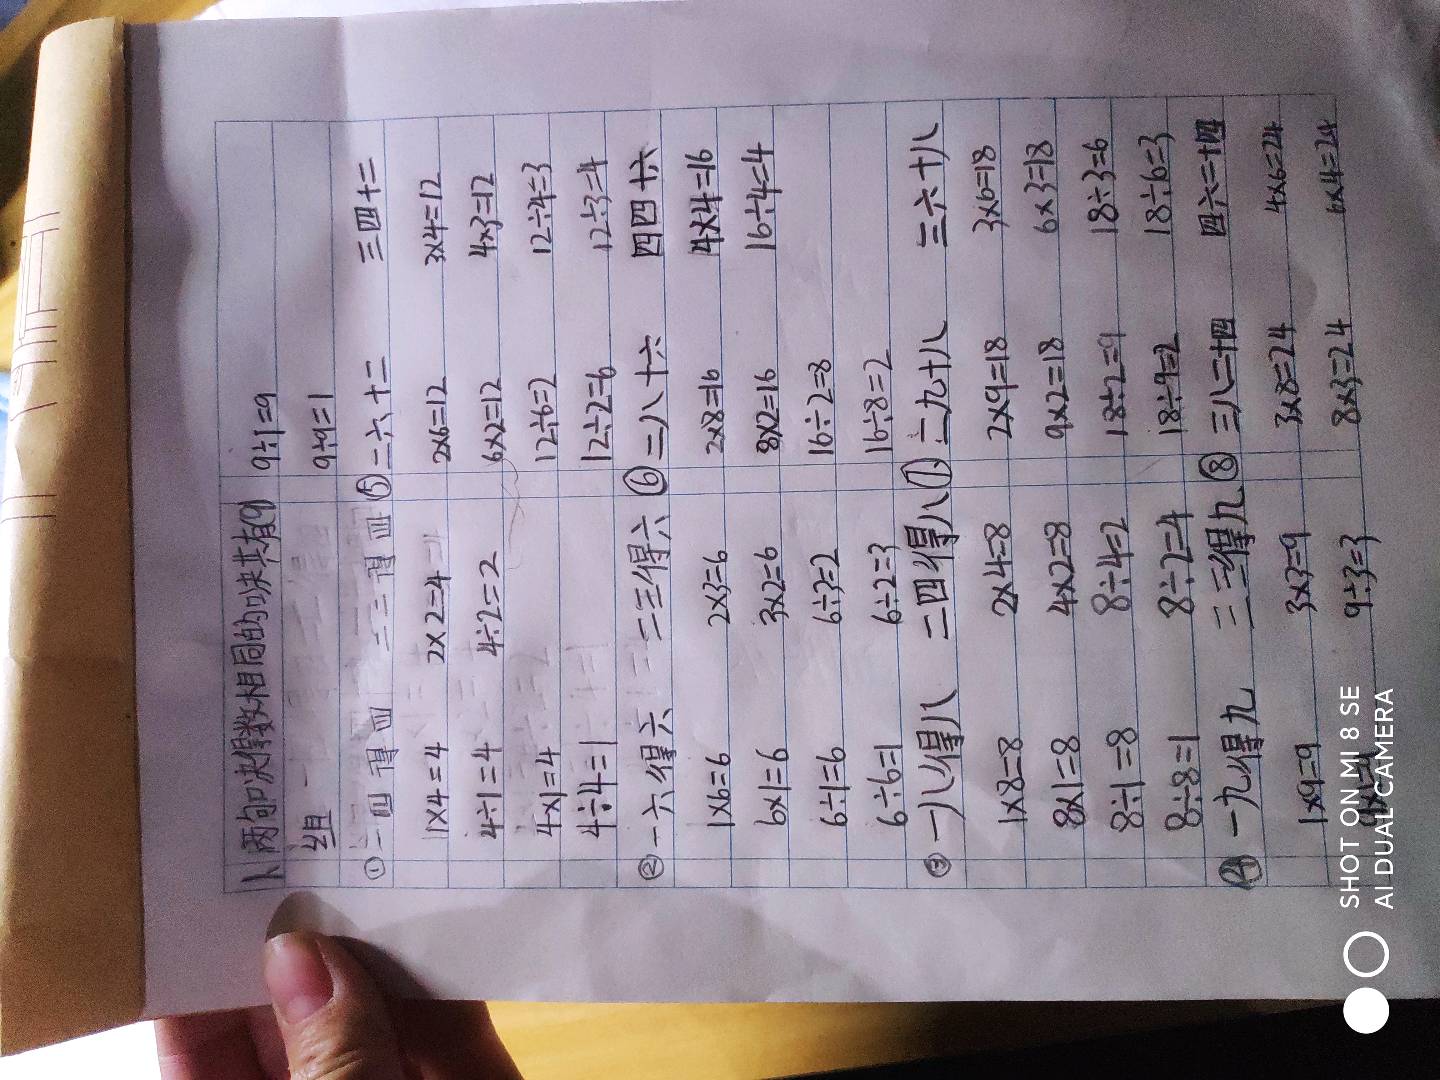 1、两句口决得数相同的口决共有9 9÷1=9
组 9÷9=1
①一四得四 二二得四 ⑤二六十二 三四十二
1×4=4 2×2=4 2×6=12 3×4=12
4÷1=4 4÷2=2 6×2=12 4×3=12
4×1=4 12÷6=2 12÷4=3
4÷4=1 12÷2=6 12÷3=4
②一六得六 二三得六 ⑥二八十六 四四十六
1×6=6 2×3=6 2×8=16 4×4=16
6×1=6 3×2=6 8×2=16 16÷4=4
6÷1=6 6÷3=2 16÷2=8
6÷6=1 6÷2=3 16÷8=2
③一八得八 二四得八 ⑦二九十八 三六十八
1×8=8 2×4=8 2×9=18 3×6=18
8×1=8 4×2=8 9×2=18 6×3=18
8÷1=8 8÷4=2 18÷2=9 18÷3=6
8÷8=1 8÷2=4 18÷9=2 18÷6=3
④一九得九 三三得九 ⑧三八二十四 四六二十四
1×9=9 3×3=9 3×8=24 4×6=24
9÷3=3 8×3=24 6×4=24
SHOT ON MI 8 SE
AI DUAL CAMERA